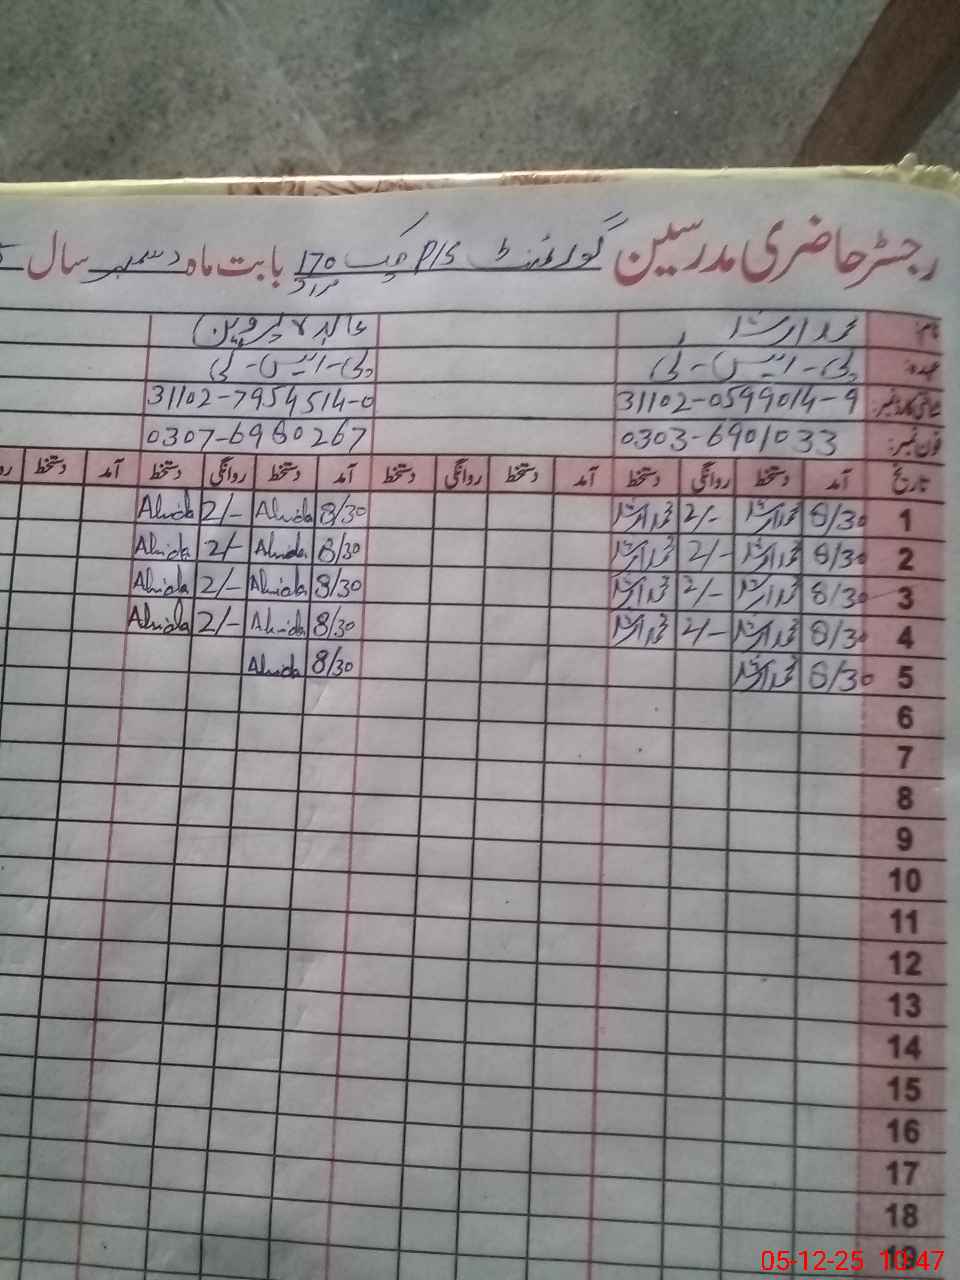 رجسٹر حاضری مدرسین گورنمنٹ P/S چک 170 مراد بابت ماہ دسمبر سال
نام: محمد ارشد
عہدہ: پی-ایس-ٹی پی-ایس-ٹی
شناختی کارڈ نمبر: 31102-0599014-9 31102-7954514-0
فون نمبر: 0303-6901033 0307-6980267
تاریخ آمد دستخط روانگی دستخط آمد دستخط روانگی دستخط آمد دستخط روانگی دستخط آمد دستخط
1 8/30 محمد ارشد 2/- محمد ارشد 8/30 Abida 2/- Abida
2 8/30 محمد ارشد 2/- محمد ارشد 8/30 Abida 2/- Abida
3 8/30 محمد ارشد 2/- محمد ارشد 8/30 Abida 2/- Abida
4 8/30 محمد ارشد 2/- محمد ارشد 8/30 Abida 2/- Abida
5 8/30 محمد ارشد 8/30 Abida
6
7
8
9
10
11
12
13
14
15
16
17
18
19
05-12-25 10:47